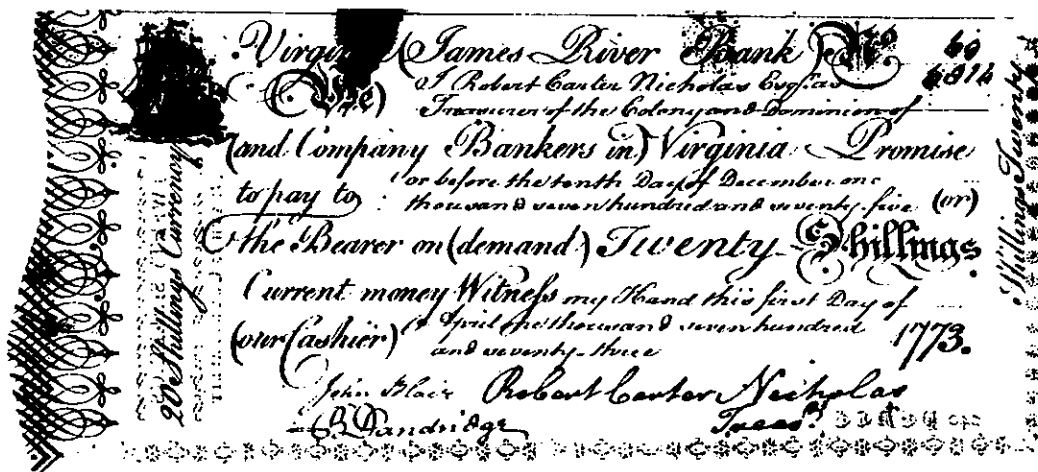 Virginia (James River Bank) No 69
(We) I Robert Carter Nicholas Esqr. as 6812
Treasurer of the Colony and Dominion of
(and Company Bankers in) Virginia Promise
to pay to or before the tenth Day of December one
thousand seven hundred and seventy-five (or)
the Bearer on (demand) Twenty Shillings
Current money Witness my Hand this first Day of
(our Cashier) April one thousand seven hundred
and seventy-three 1773.
John Blair Robert Carter Nicholas
B. Dandridge Treasr.
20 Shillings Currency
Shillings Twenty